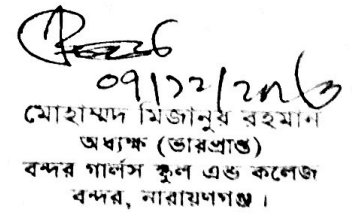 মোহাম্মদ মিজানুর রহমান
অধ্যক্ষ (ভারপ্রাপ্ত)
বন্দর গার্লস স্কুল এন্ড কলেজ
বন্দর, নারায়ণগঞ্জ।